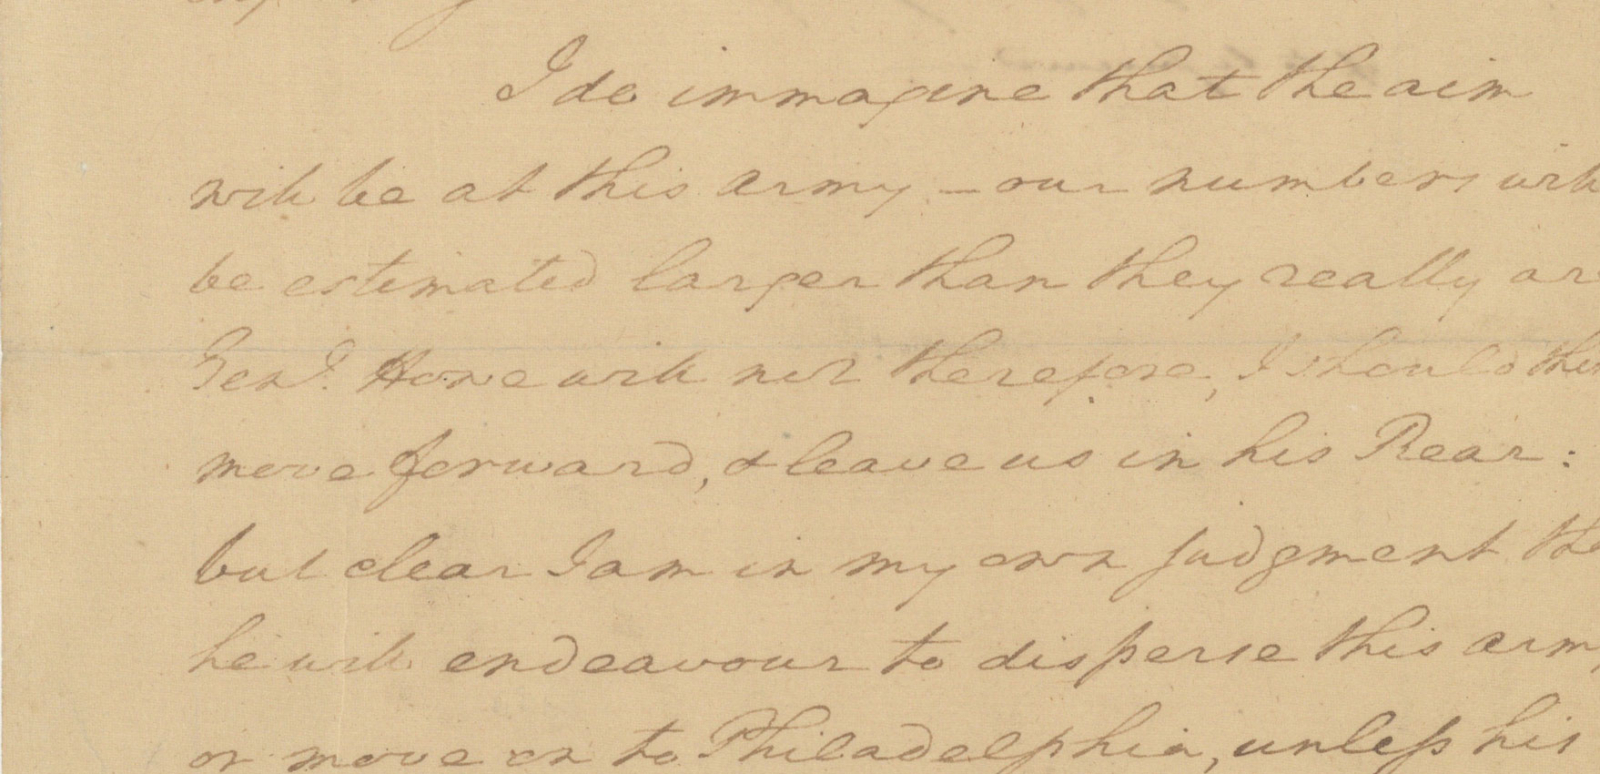 I do immagine that the aim
will be at this army – our numbers will
be estimated larger than they really are
Genl. Howe will not therefore, I should thin
move forward, & leave us in his Rear:
but clear I am in my own judgment tha
he will endeavour to disperse this army
or move on to Philadelphia, unless his